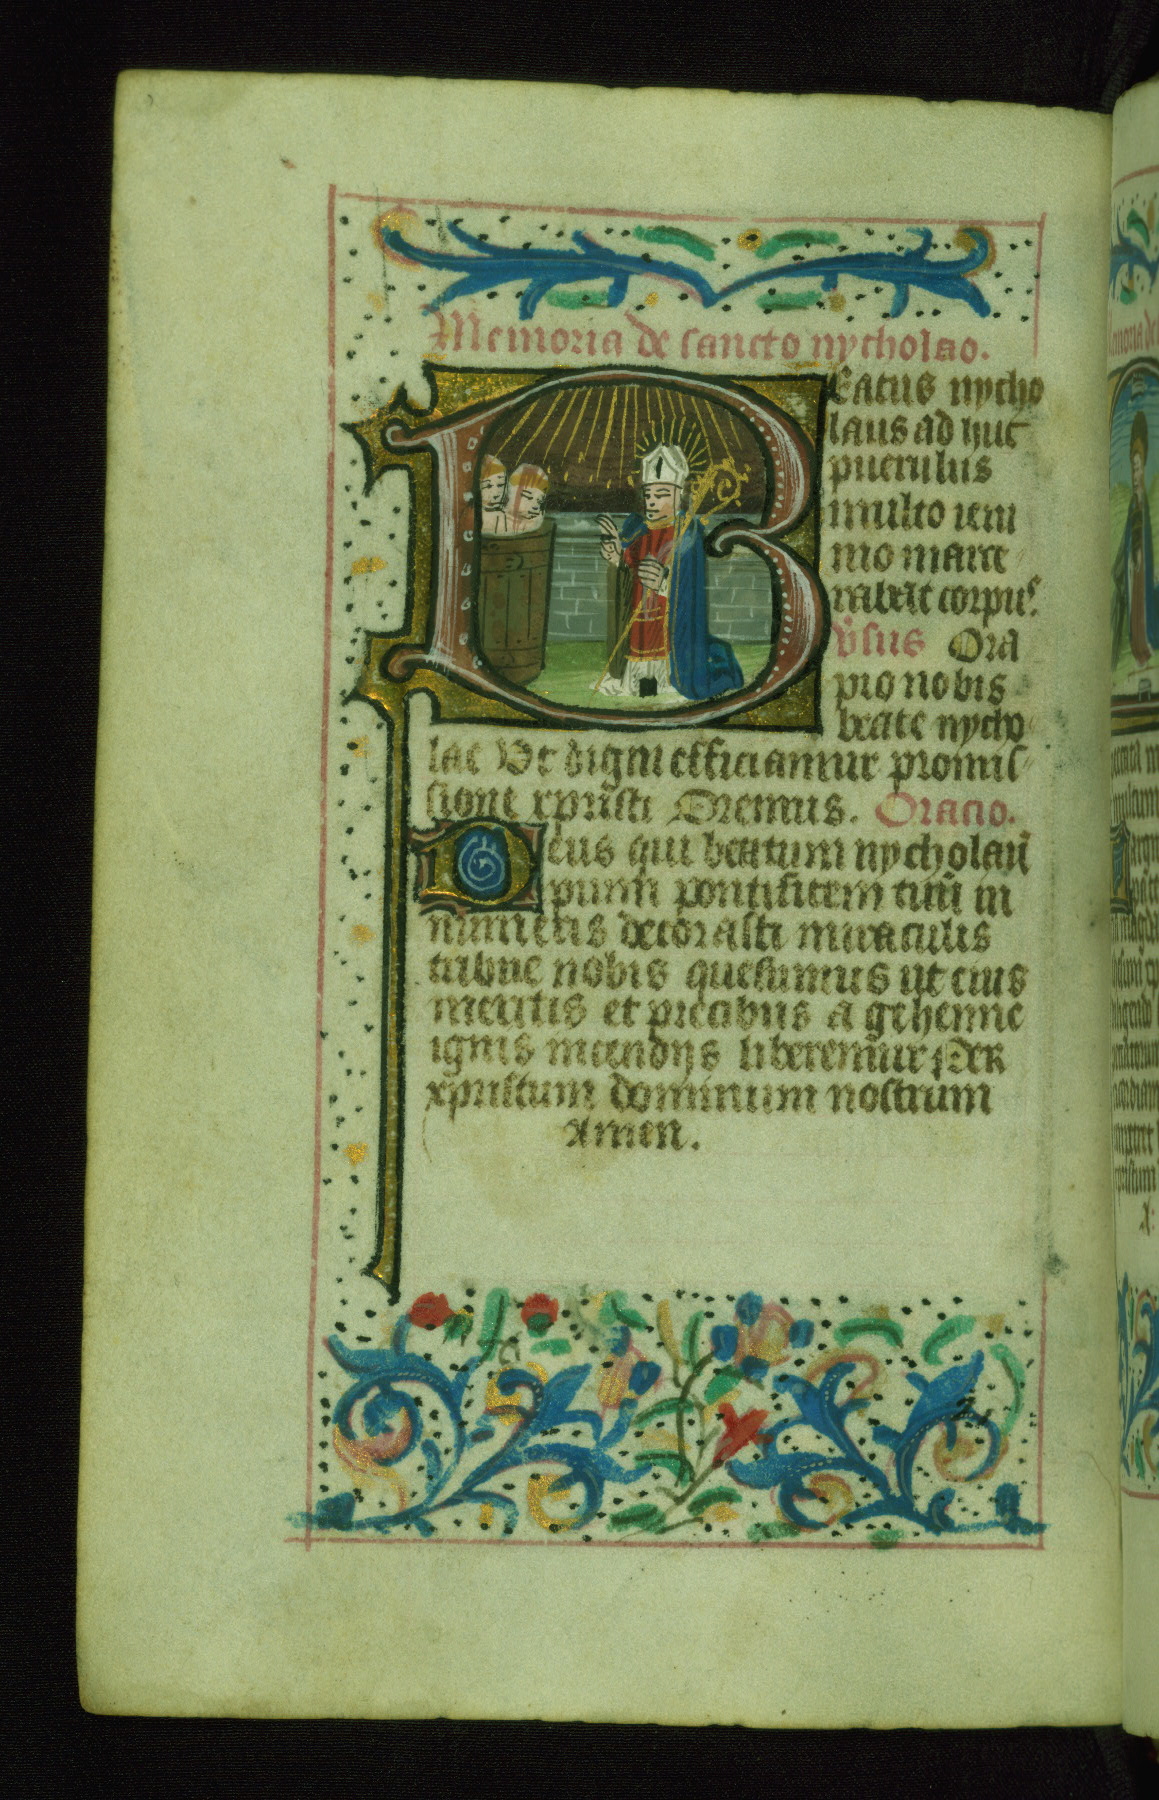 Memoria de sancto nycholao.
BEatus nycho
laus ad huc
puerulus
multo ieiu
nio mace
rabat corpus.
v̄sus Ora
pro nobis
beate nycho
lae Vt digni efficiamur promis
sione xpristi Oremus. Oracio.
Deus qui beatum nycholaū
pium pontificem tuū in
numeris decorasti miraculis
tribue nobis quesumus ut eius
meritis et precibus a gehenne
ignis incendijs liberemur Per
xpristum dominum nostrum
Amen.